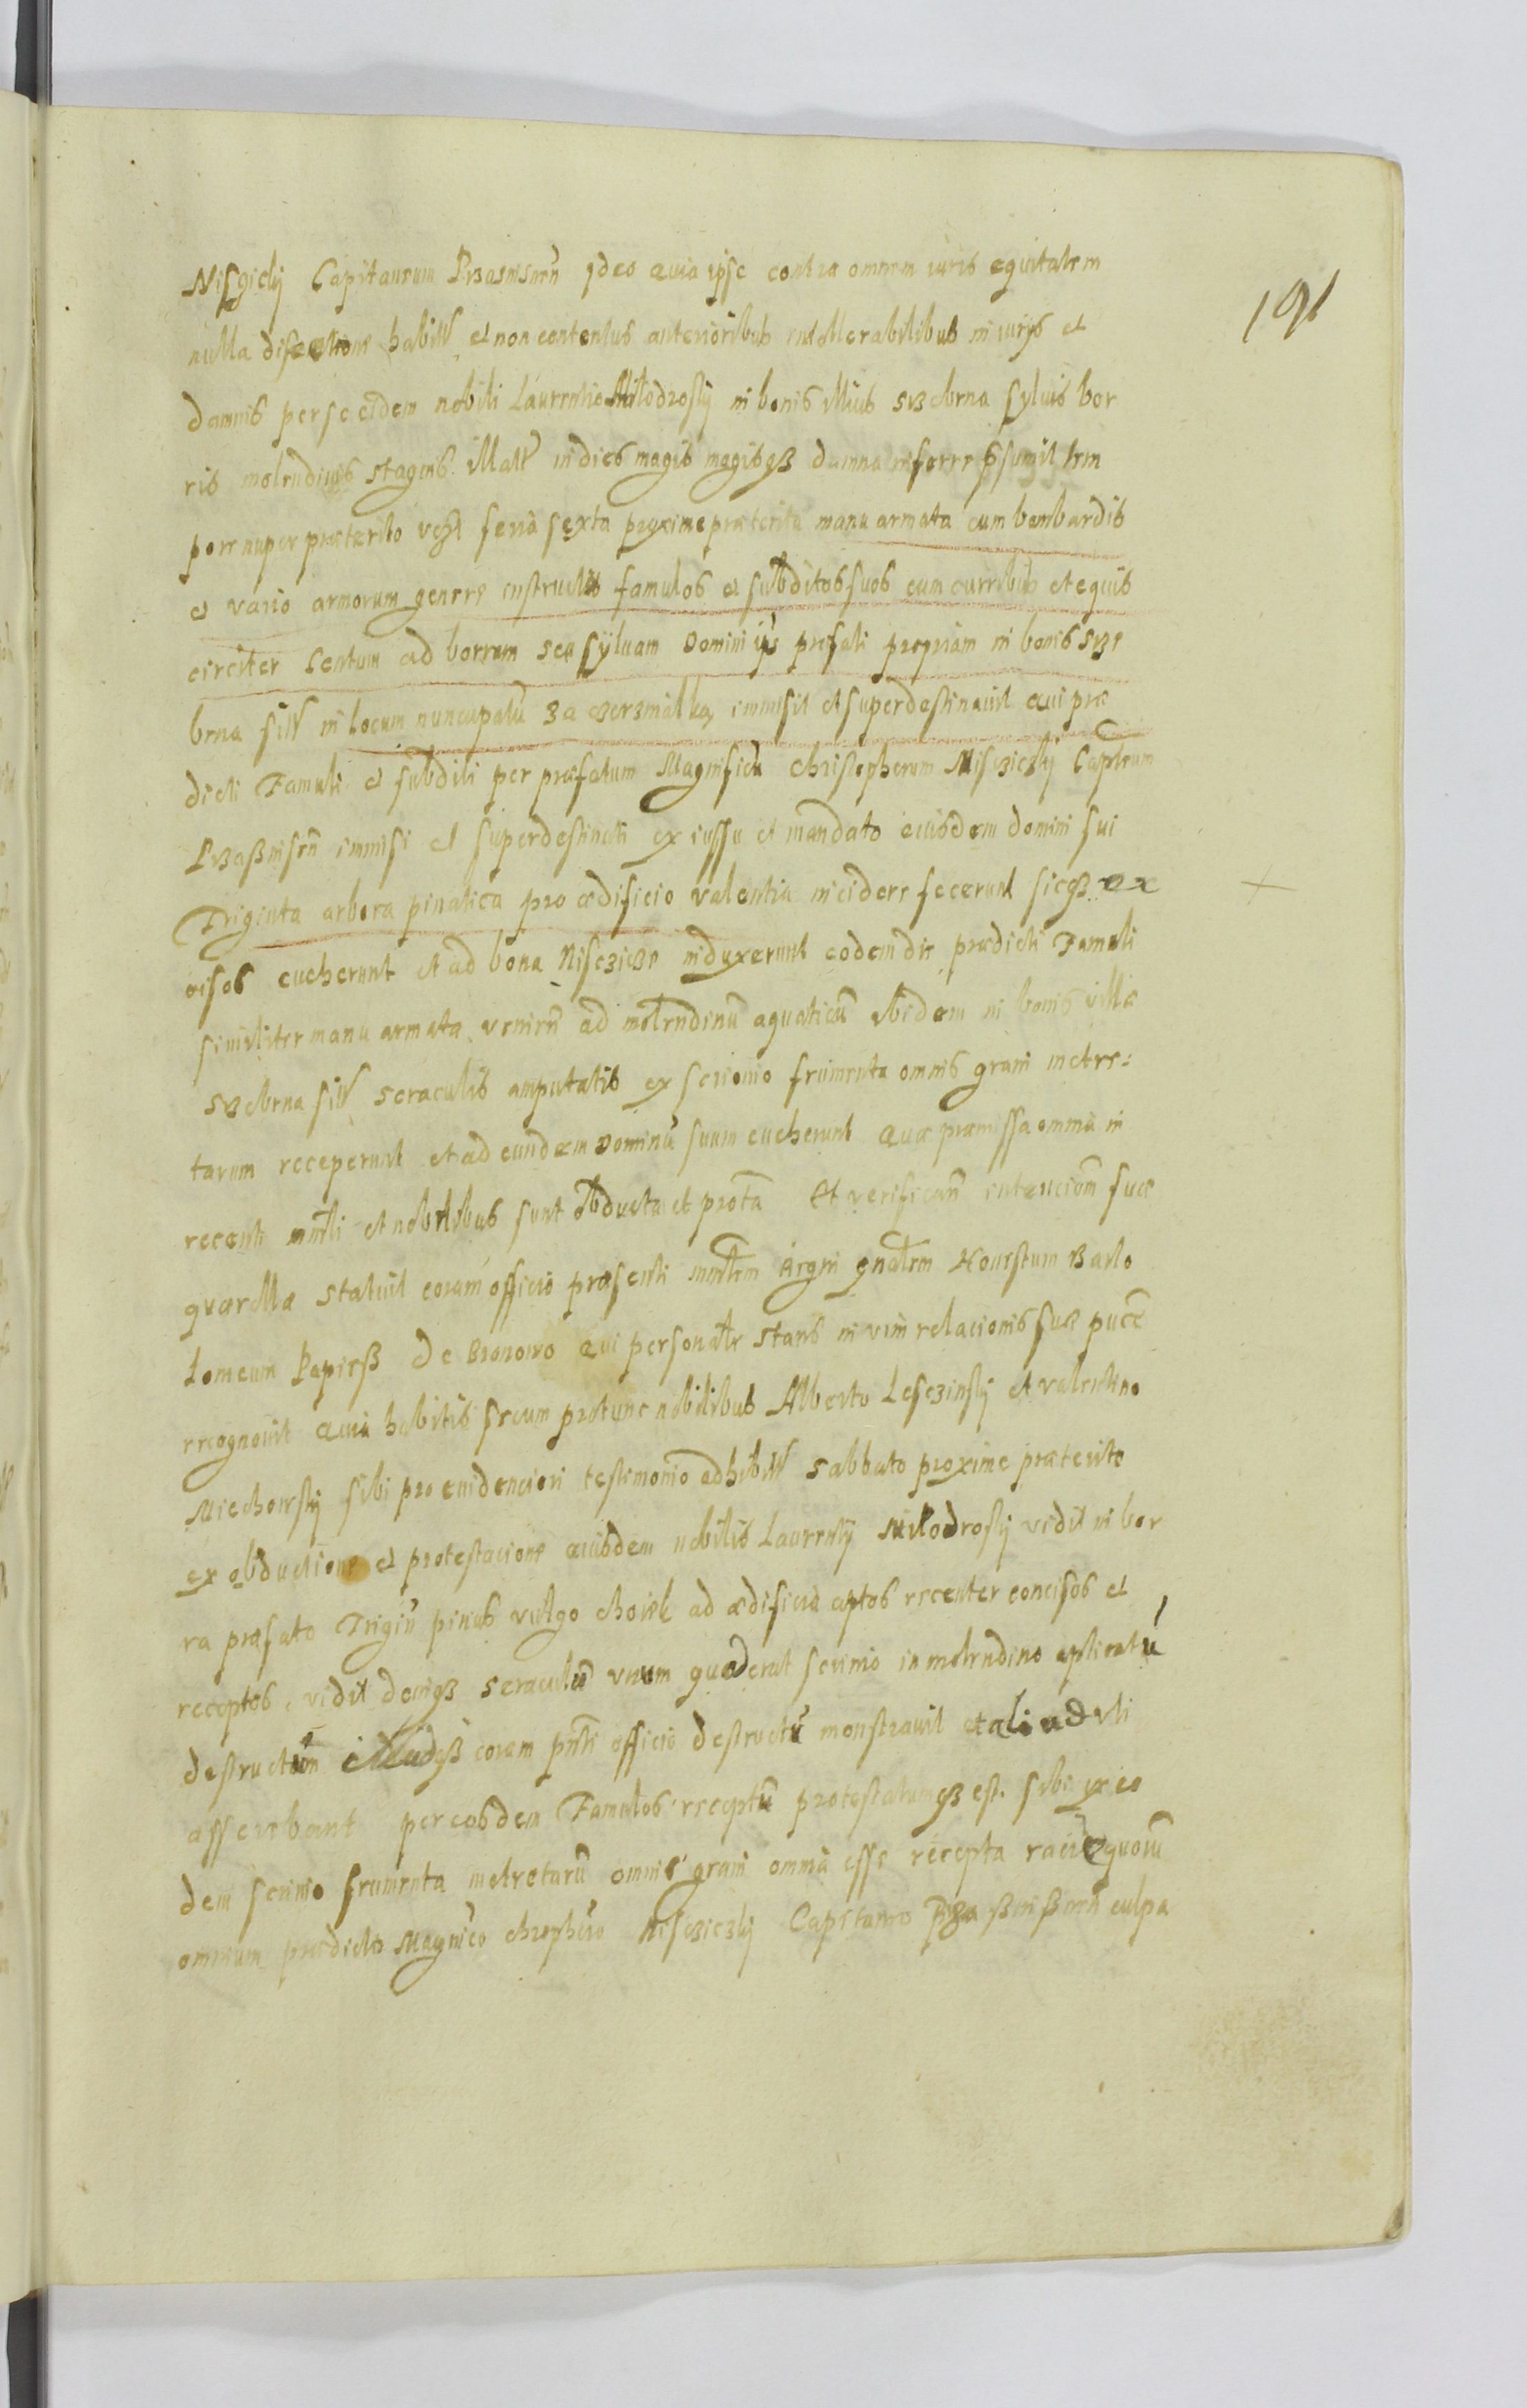 191
Nisczicky Capitaneum Przasnisnēn Ideo quia ipse contra omnem iuris equitatem
nulla discretione habita et non contentus anterioribus intollerabilibus iniurijs et
damnis per se eidem nobili Laurentio Milodrosky in bonis illius Srebrna syluis bor
ris molendinis stagnis illatis indies magis magisqz damna inferre psumit tem
pore nuper praeterito vczt feria sexta proxime praeterita manu armata cum bombardis
et vario armorum genere instructos famulos et subditos suos cum curribus et equis
circiter Centum ad borram seu syluam domini ipsius prefati propriam in bonis Sre
brna sitis in locum nuncupatū Za czerzmialką immisit et superdestinauit qui prae
dicti Famuli et subditi per praefatum Magnificū Christopherum Misczicky Captneum
Przasznisēn immisi et superdestinati ex iussu et mandato eiusdem domini sui
Triginta arbora pinatica pro aedificio valentia incidere fecerunt sicqz ex
cisos eucherunt et ad bona Nisczicze induxerunt eodem die praedicti Famuli
similiter manu armata venien̄ ad molendinū aquaticū ibidem in bonis villae
Srebrna sitis seraculis amputatis ex scrionio frumenta omnis grani metre:
tarum receperunt et ad eundem Dominū suum eucherunt Quae praemissa omnia in
recenti mnrli et nobilibus sunt obducta et protta Et verifican̄ intencionē suae
quaerellae statuit coram officio praesenti mnrlem Regni gnalem Honestum Barlo
lomeum Papiesz de Bronowo Qui personalr stans in vim relacionis suae pucae
recognouit Quia habitis secum protunc nobilibus Alberto Lesczinsky et Valentino
Miechowsky sibi pro euidenciori testimonio adhibitis Sabbato proxime praeterito
ex obductione et protestacione eiusdem nobilis Laurentij Milodrosky vidit in bor
ra praefato Trigin̄ pinus vulgo choiek ad aedificia aptos recenter concisos et
receptos, vidit deniqz seraculū vnum quod erat scrinio in molendino aplicatū
destructum illudqz coram pnti officio destructū monstrauit et aliud vti
asserebant per eosdem Famulos receptū protestatumqz est. sibi ex eo
dem scrinio frumenta metretarū omnis grani omnia esse recepta racione quorū
omnium praedicto Magnico chrophero Nisczicky Capitaneo Przasznisznēn culpa